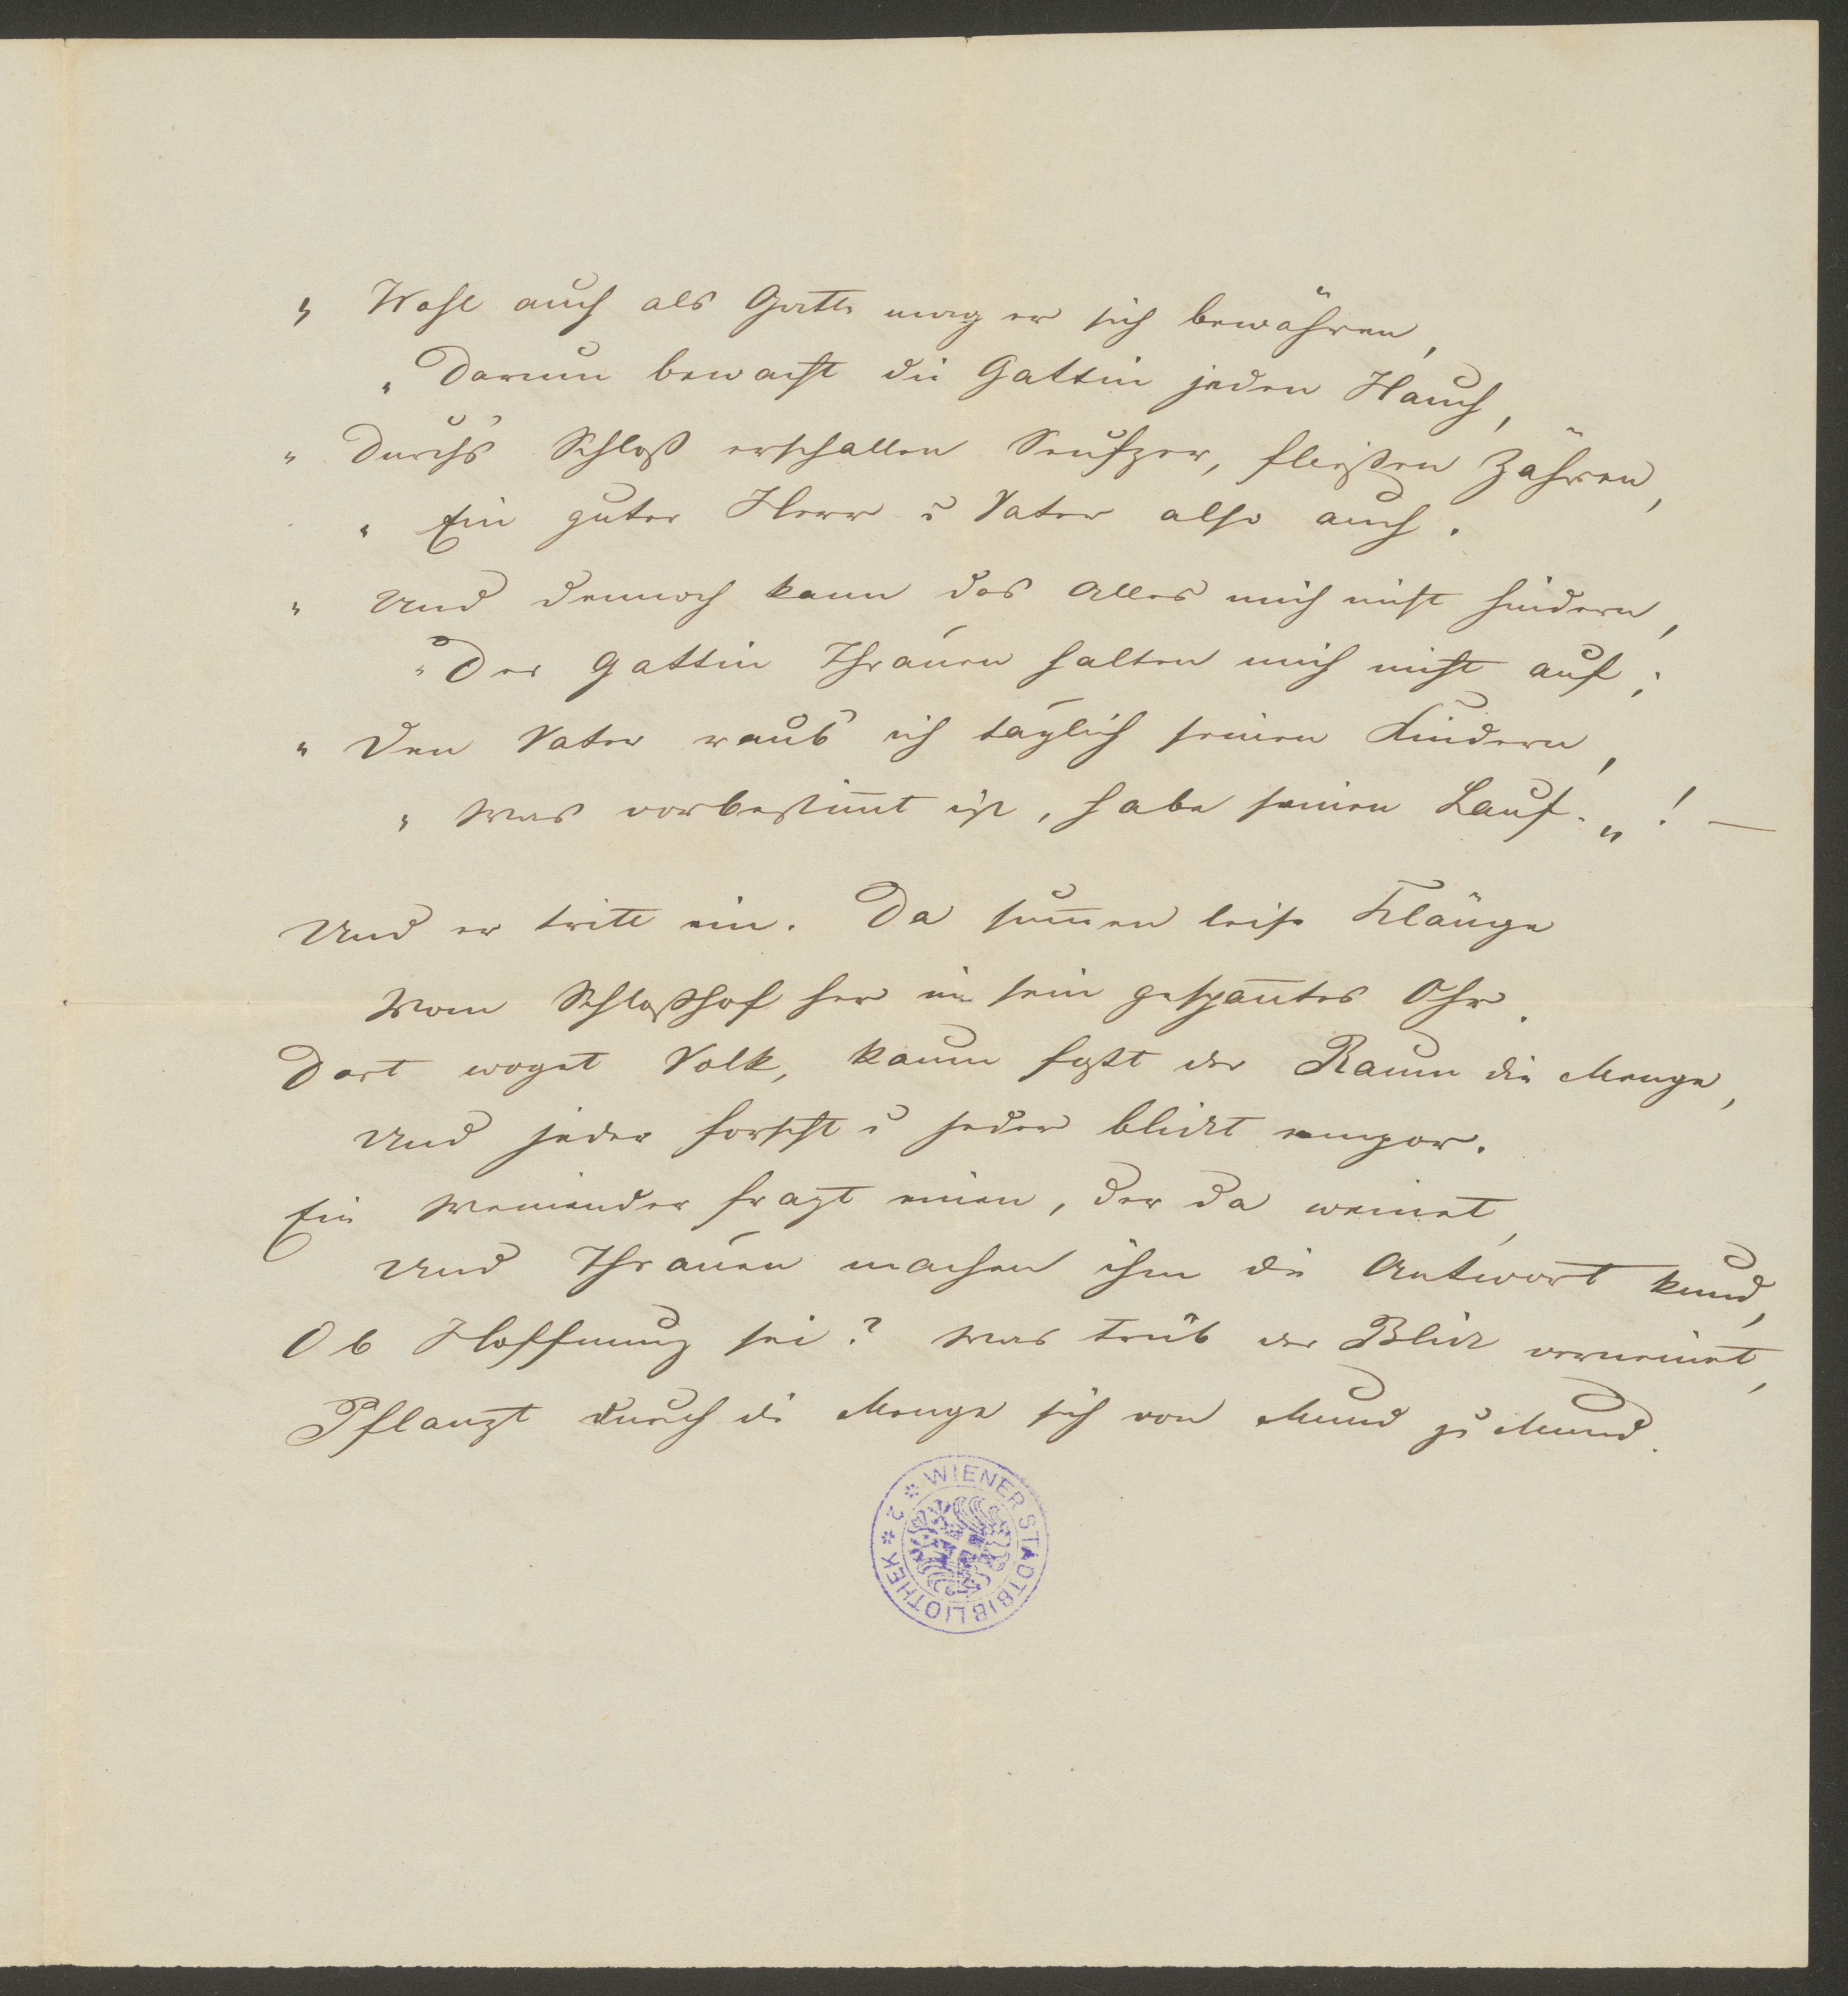 „ Wohl auch als Gatte mag er sich bewähren,
„ Darum bewacht die Gattin jeden Hauch,
„ Durch's Schloß erschallen Seufzer, fließen Zähren,
„ Ein guter Herr u Vater also auch.
„ Und dennoch kann das Alles mich nicht hindern,
„ Der Gattin Thränen halten mich nicht auf;
„ Den Vater raub' ich täglich seinen Kindern,
„ Was vorbestim̅t ist, habe seinen Lauf. „! —
Und er tritt ein. Da sum̅en leise Klänge
Vom Schloßhof her in sein gespan̅tes Ohr.
Dort woget Volk, kaum faßt der Raum die Menge,
Und jeder forscht u jeder blickt empor.
Ein Weinender fragt einen, der da weinet,
Und Thränen machen ihm die Antwort kund,
Ob Hoffnung sei? Was trüb der Blick verneinet,
Pflanzt durch die Menge sich von Mund zu Mund.
WIENER STADTBIBLIOTHEK 2